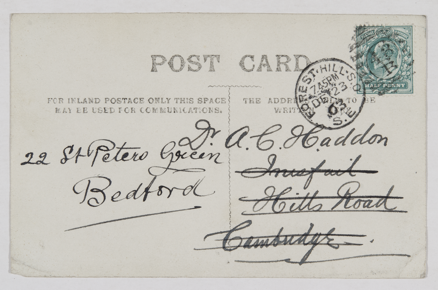 POST CARD
FOR INLAND POSTAGE ONLY THIS SPACE
MAY BE USED FOR COMMUNICATIONS.
THE ADDRESS TO BE
WRIT
FOREST-HILL-S.O.
7.45PM
DE 23
S.E.
HALF PENNY
Dr. A. C. Haddon
Inisfail
Hills Road
Cambridge.
22 St Peters Green
Bedford